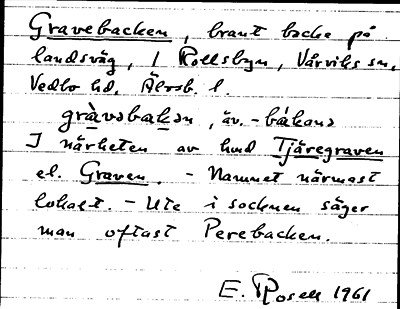 Gravebacken, brant backe på
landsväg, i Rollsbyn, Vårviks sn,
Vedbo hd, Älvsb. l.
gràvəbakən, äv. -bákans
I närheten av hmd Tjäregraven
el. Graven. - Namnet närmast
lokalt. - Ute i socknen säger
man oftast Perebacken.
E. Rosell 1961